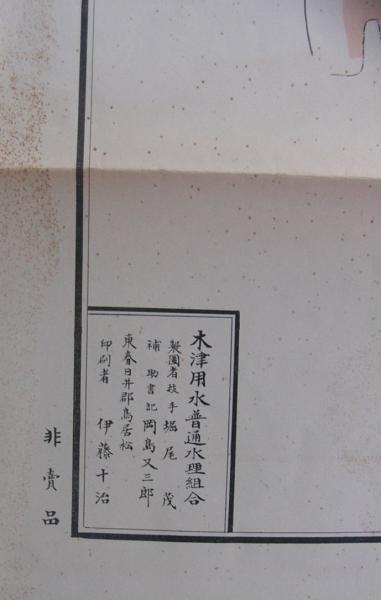 木津用水普通水理組合
製図者技手 堀尾茂
補助書記 岡島又三郎
東春日井郡鳥居松
印刷者 伊藤十治
非賣品